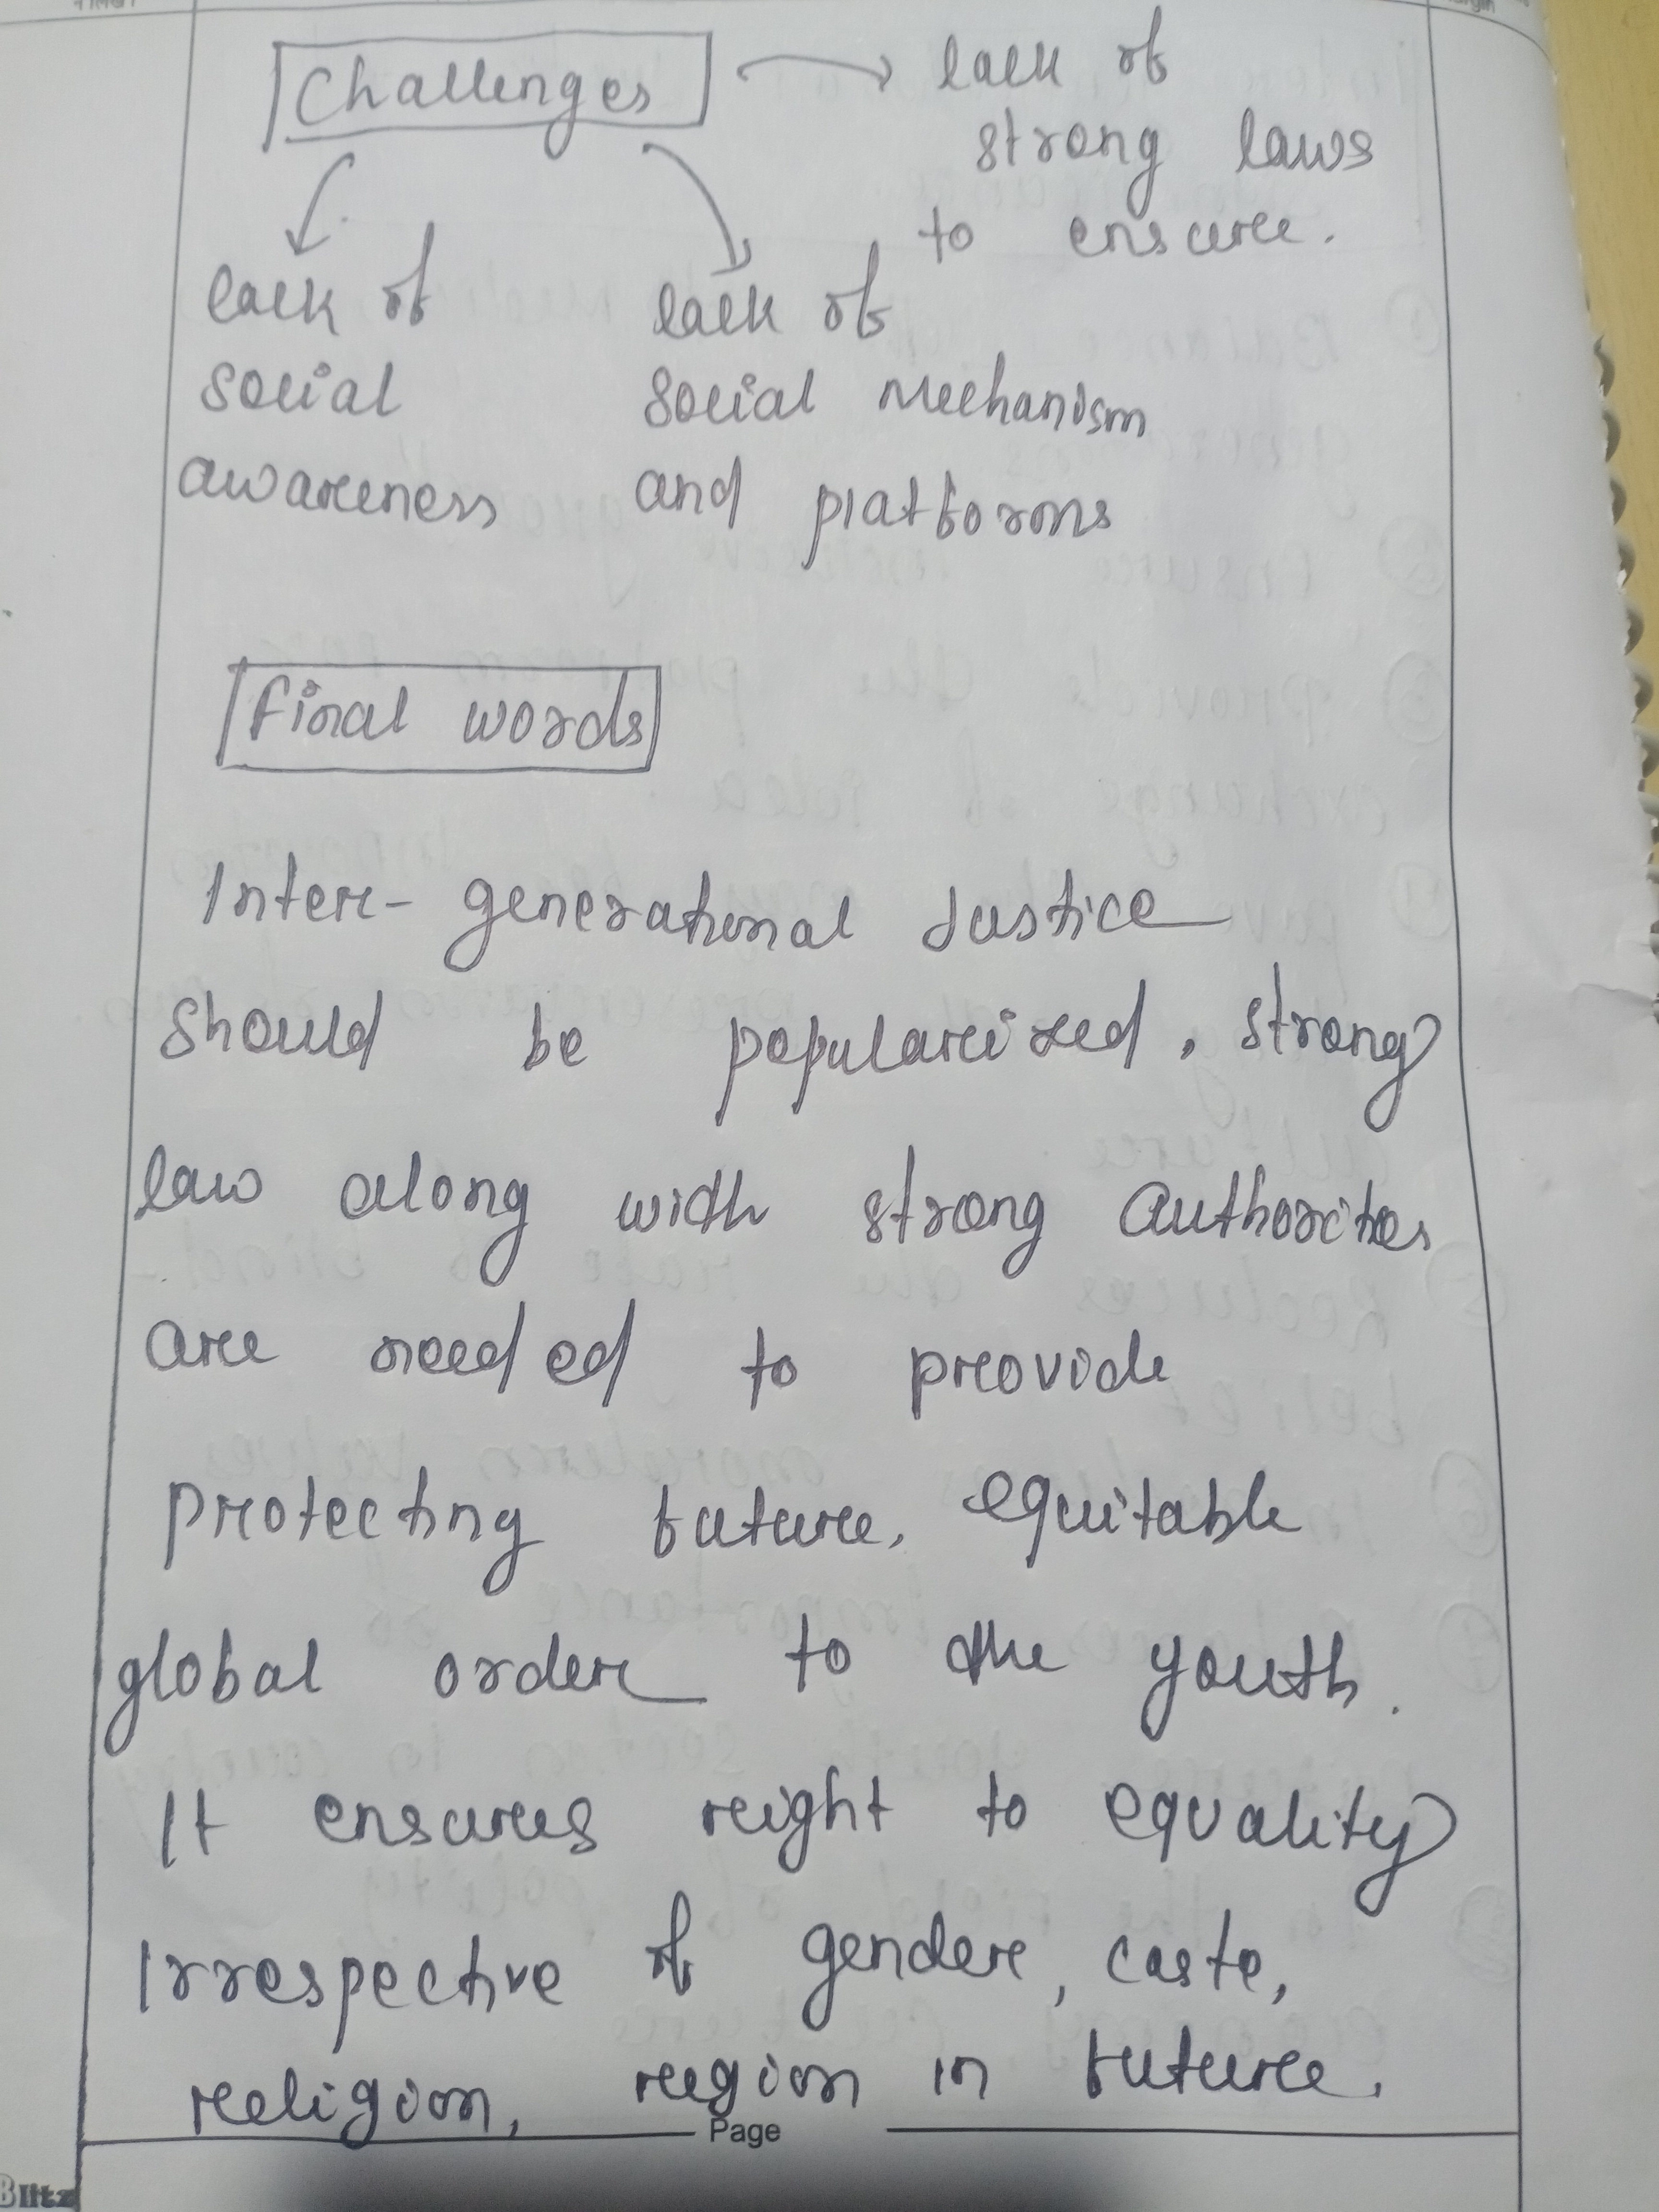 Challenges → lack of
strong laws
to ensure.
lack of
social
awareness
lack of
social Mechanism
and platforms
Final words
Inter-generational Justice
should be popularized, strong
law along with strong authorities
are needed to provide
protecting future, equitable
global order to the youth.
It ensures right to equality
Irrespective of gender, caste,
religion, region in future.
Page
Blitz